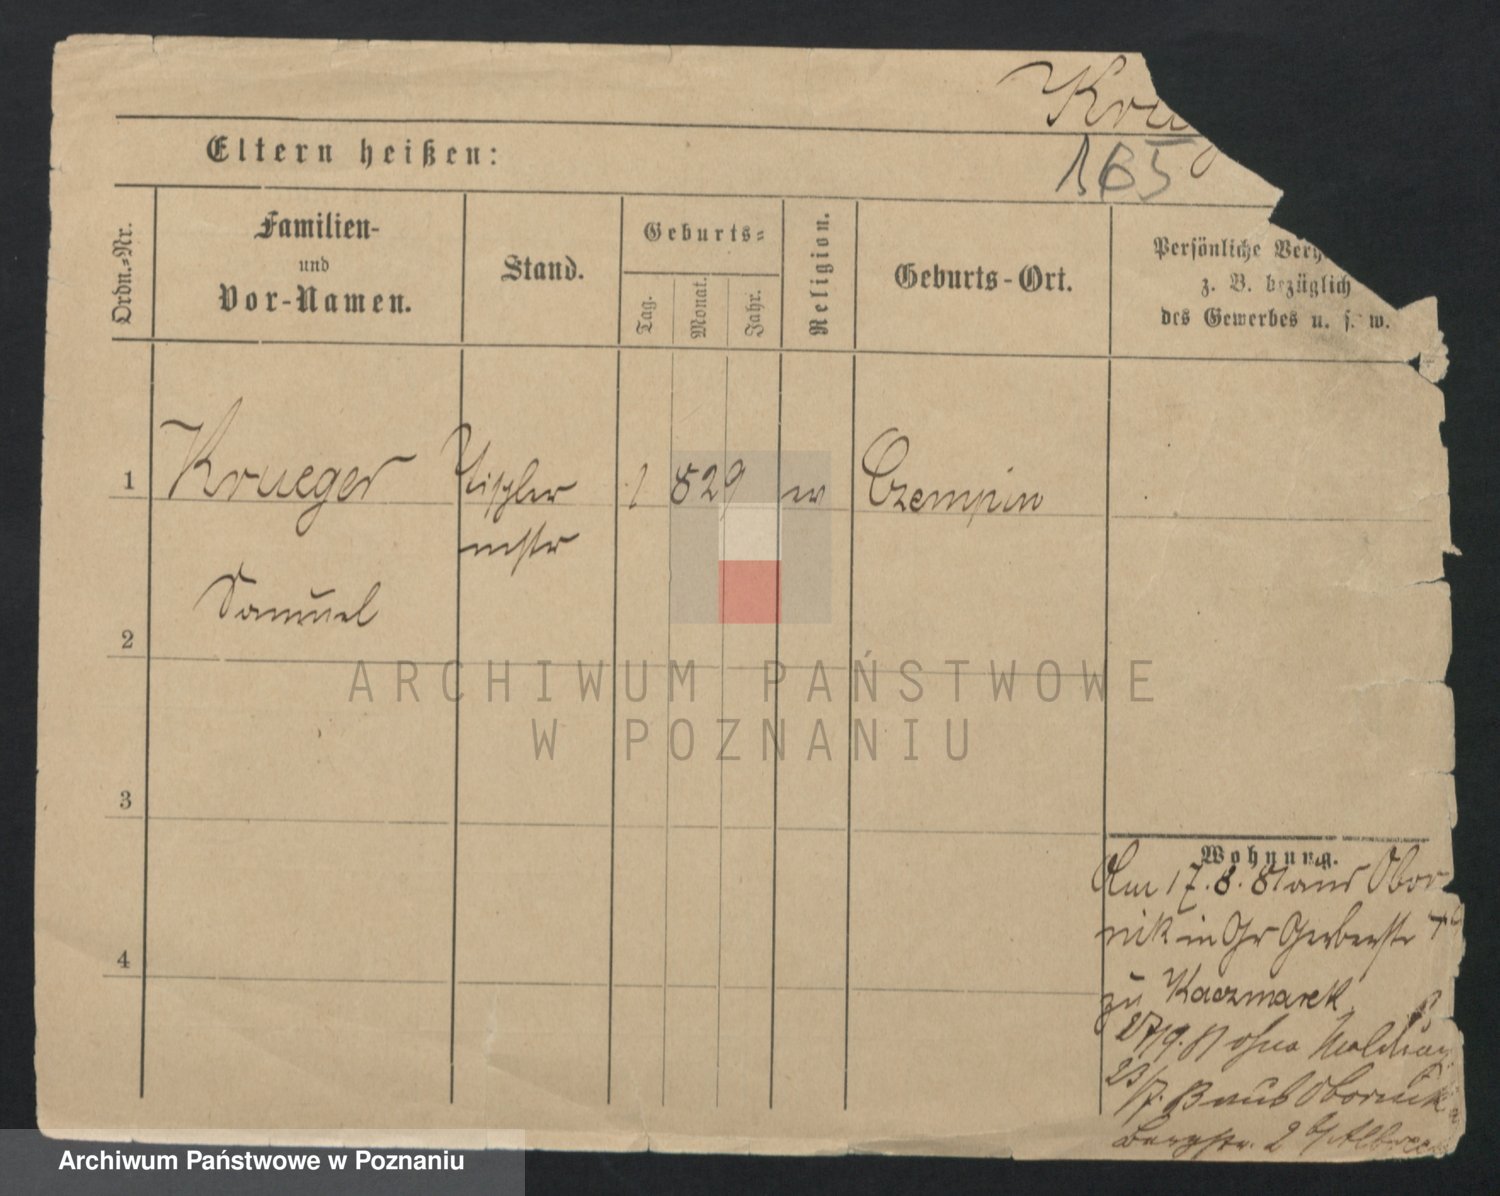 Krueg
165
Eltern heißen:
Ordn.-Nr.
Familien-
und
Vor-Namen.
Stand.
Geburts-
Tag.
Monat.
Jahr.
Religion.
Geburts-Ort.
Persönliche
z. B. bezüglich
des Gewerbes u. s. w.
1 Krueger Tischler 1 829 Czempin
mstr
Samuel
2
3
4
Wohnung.
Am 17.8.81 aus Obor
nik in Gr Gerberstr
zu Kaczmarek
27/9. 81 ohne Meldung
23/7. aus Obornik
Bergstr. 2
ARCHIWUM PAŃSTWOWE
W POZNANIU
Archiwum Państwowe w Poznaniu